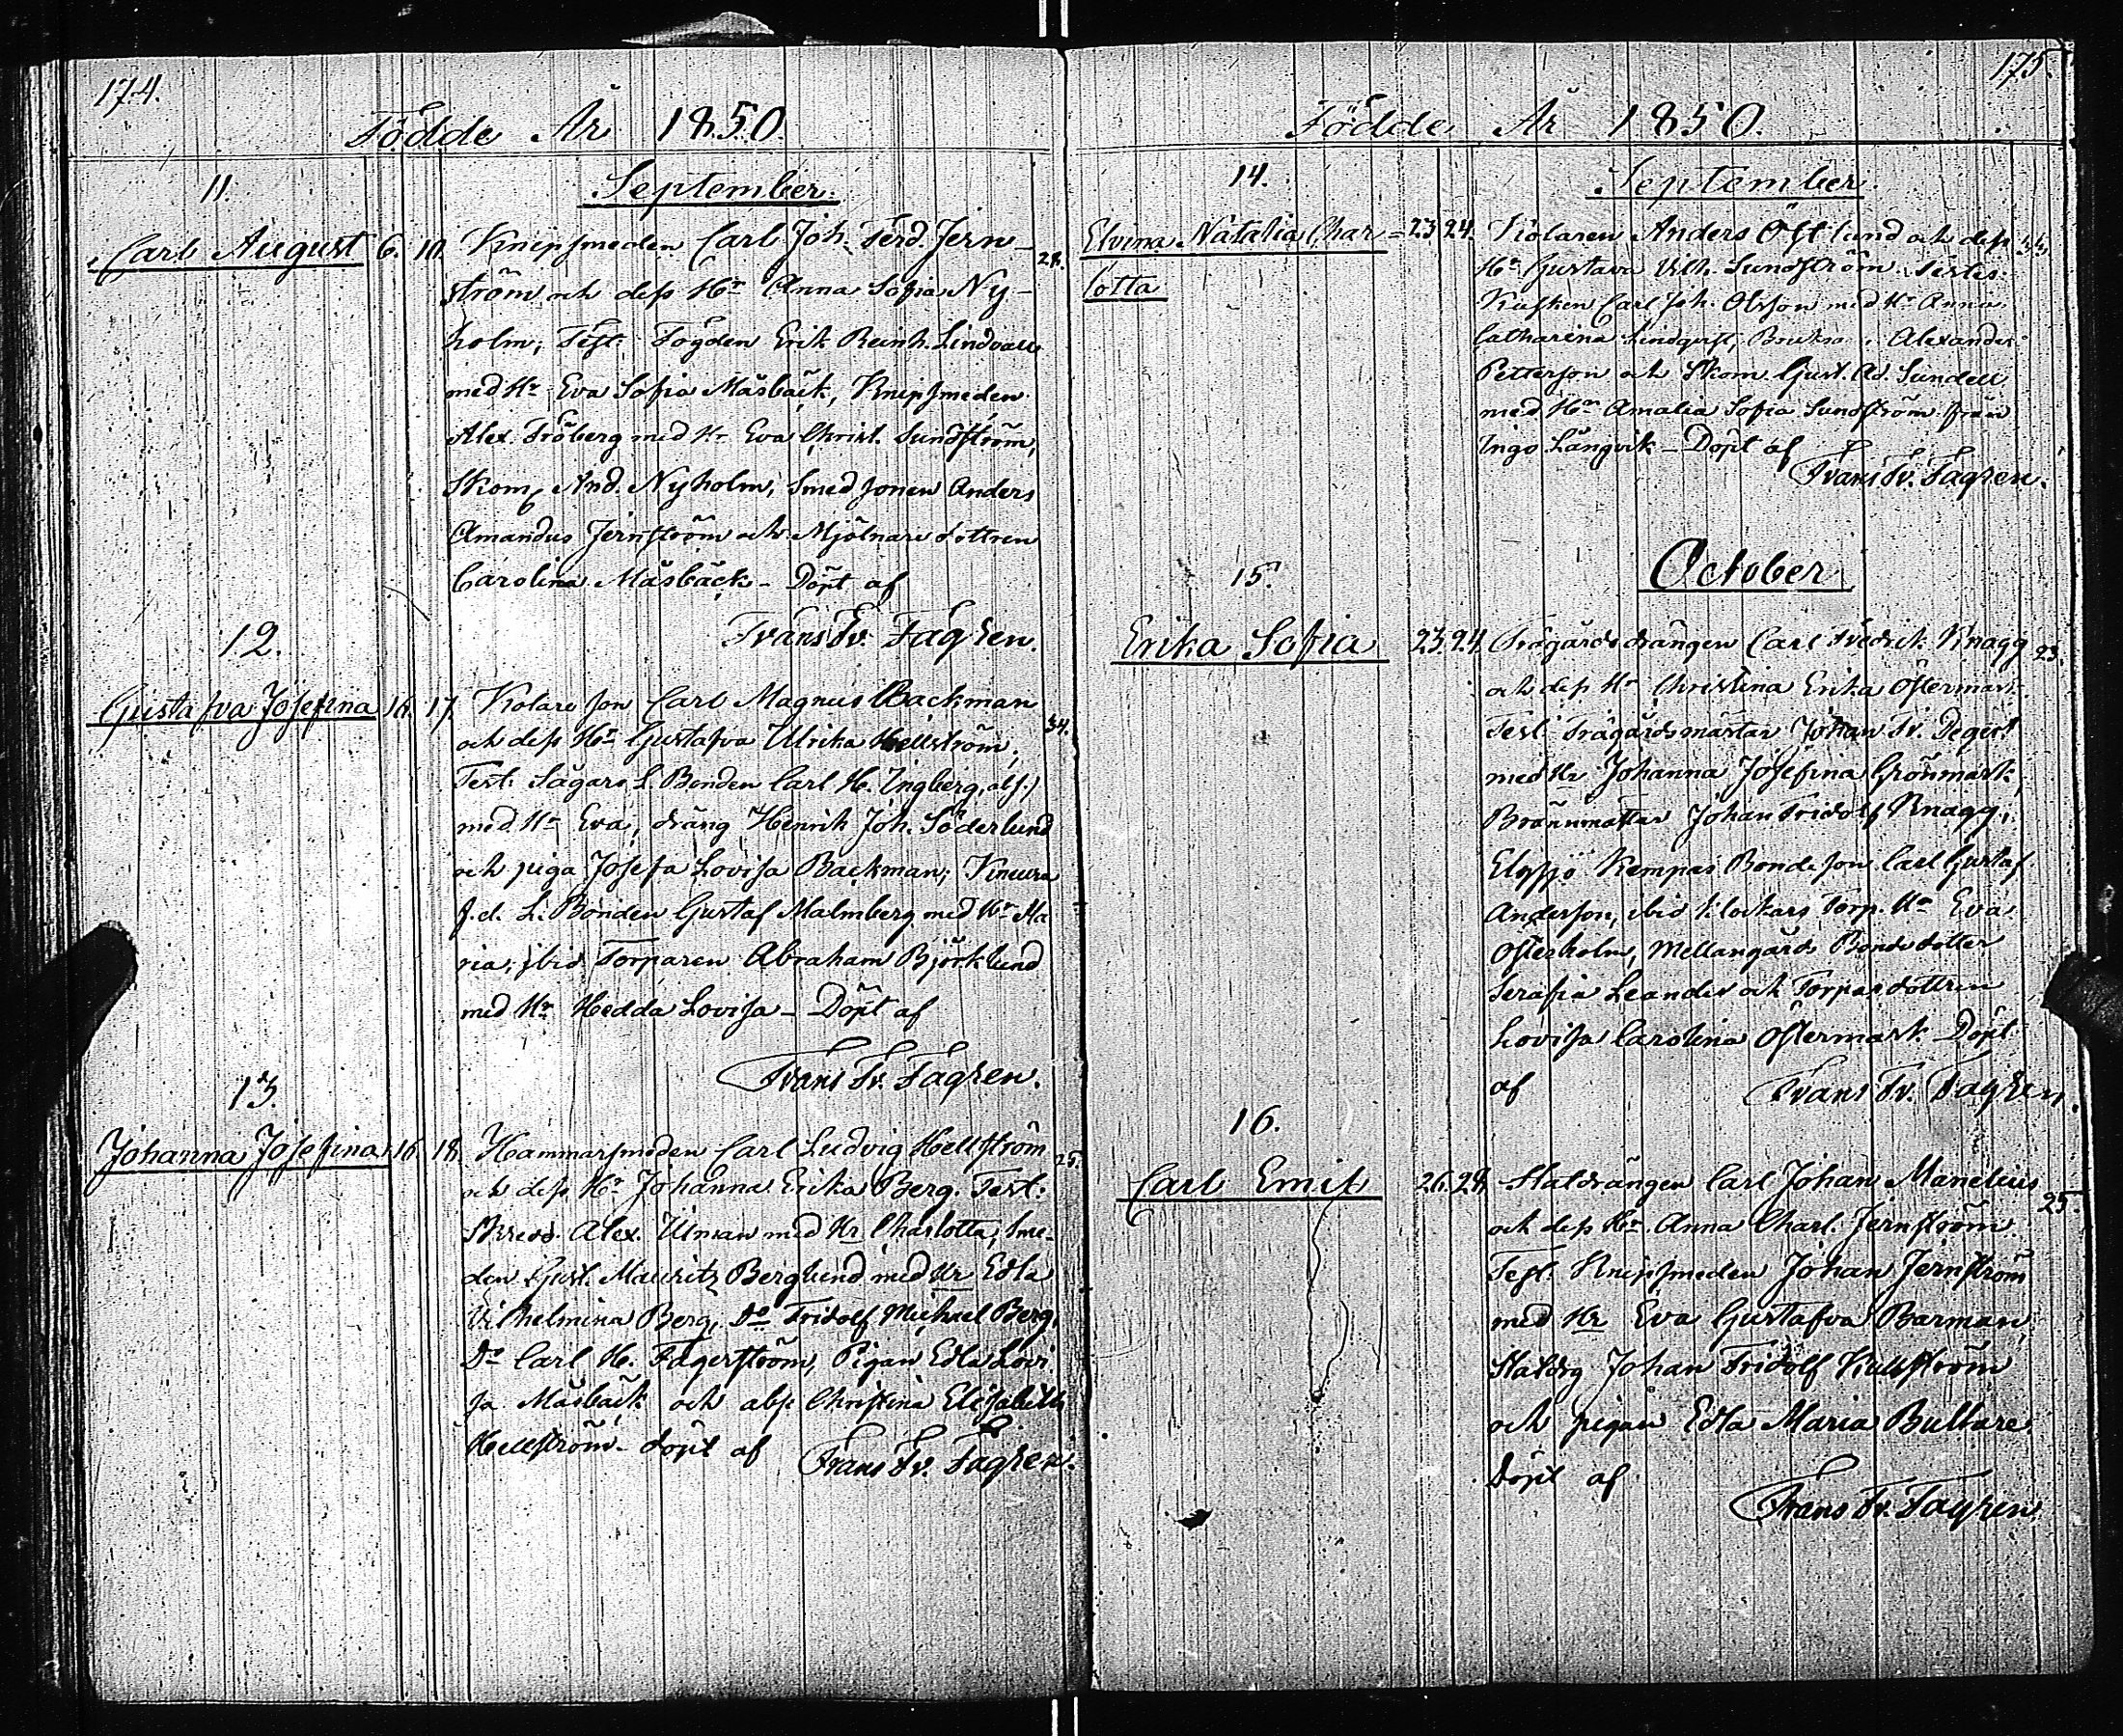 174.
Födde År 1850.
11.
September.
Carl August 6. 10. Knipsmeden Carl Joh. Ferd. Jern-
28.
ström och dess Hr Anna Sofia Ny-
holm; Test. Fogden Erik Reinh. Lindvall
med Hr Eva Sofia Måsbäck, Knipsmeden
Alex. Fröberg med Hr Eva Christ. Sundström,
Skom. And. Nyholm, Smedsonen Anders
Amandus Jernström och Mjölnare dottren
Carolina Måsbäck - Döpt af
Frans Fr. Fagren.
12.
Gustafva Josefina 16. 17. Kolare son Carl Magnus Backman
34.
och dess Hr Gustafva Ulrika Hellström,
Test. Sågars L. Bonden Carl H. Ingberg, abs.)
med Hr Eva, dräng Henrik Joh. Söderlund
och piga Josefa Lovisa Backman; Knuura
f.d. L. Bonden Gustaf Malmberg med Hr Ma
ria, ibid Torparen Abraham Björklund
med Hr Hedda Lovisa - Döpt af
Frans Fr. Fagren.
13.
Johanna Josefina 16. 18. Hammarsmeden Carl Ludvig Hellström
25.
och dess Hr Johanna Erika Berg. Test:
Skredd. Alex. Ulman med Hr Charlotta, Sme-
den Gust. Mauritz Berglund med Hr Edla
Vilhelmina Berg, Do Fridolf Michael Berg,
Do Carl H. Fagerström, Pigan Edla Lovi
sa Måsbäck och abs. Christina Elisabeth
Hellström - döpt af Frans Fr. Fagren.
175.
Födde År 1850.
14.
September.
Elvina Natalia Char= 23 24. Kolaren Anders Östlund och dess
lotta
Hr Gustava Vilh. Sundström. Testes:
Kusken Carl Joh. Olsson med Hr Anna
Catharina Lindqvist, Alexander
Petterson och Skom. Gust. Ad. Sundell
med Hr Amalia Sofia Sundström från
Ingo Långvik - Döpt af
Frans Fr. Fagren.
October
15.
Erika Sofia 23. 24. Trägårds drängen Carl Fredrik Knagg
23.
och dess Hr Christina Erika Östermark.
Test: Trägårdsmästar Johan Fr. Degert
med Hr Johanna Josefina Grönmark,
Brännmästar Johan Fridolf Knagg;
Elgsjö Kempas Bonde son Carl Gustaf
Anderson, ibid Klockars Torp. Hr Eva
Österholm, Mellangårds Bondedotter
Serafia Leander och Torpardottren
Lovisa Carolina Östermark. Döpt
af Frans Fr. Fagren.
16.
Carl Emil 26. 28. Statdrängen Carl Johan Manelius
25.
och dess Hr Anna Charl. Jernström.
Test. Knipsmeden Johan Jernström
med Hr Eva Gustafva Barman,
Statdrg Johan Fridolf Kullström
och pigan Edla Maria Bultare.
Döpt af
Frans Fr. Fagren.